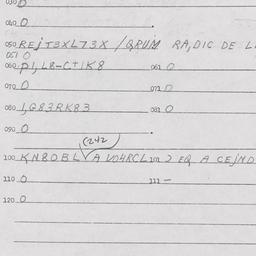 030 0
040 0
050 REJT3XL73X / QRUM RA,DIC DE L
051 0
060 P1,L8-C+1K8 061 0
070 0 071 0
080 1,G83RK83 081 0
090 0
(242
100 KN8OBL A V04RCL 101 2 EQ A CEJND
110 0 111 -
120 0